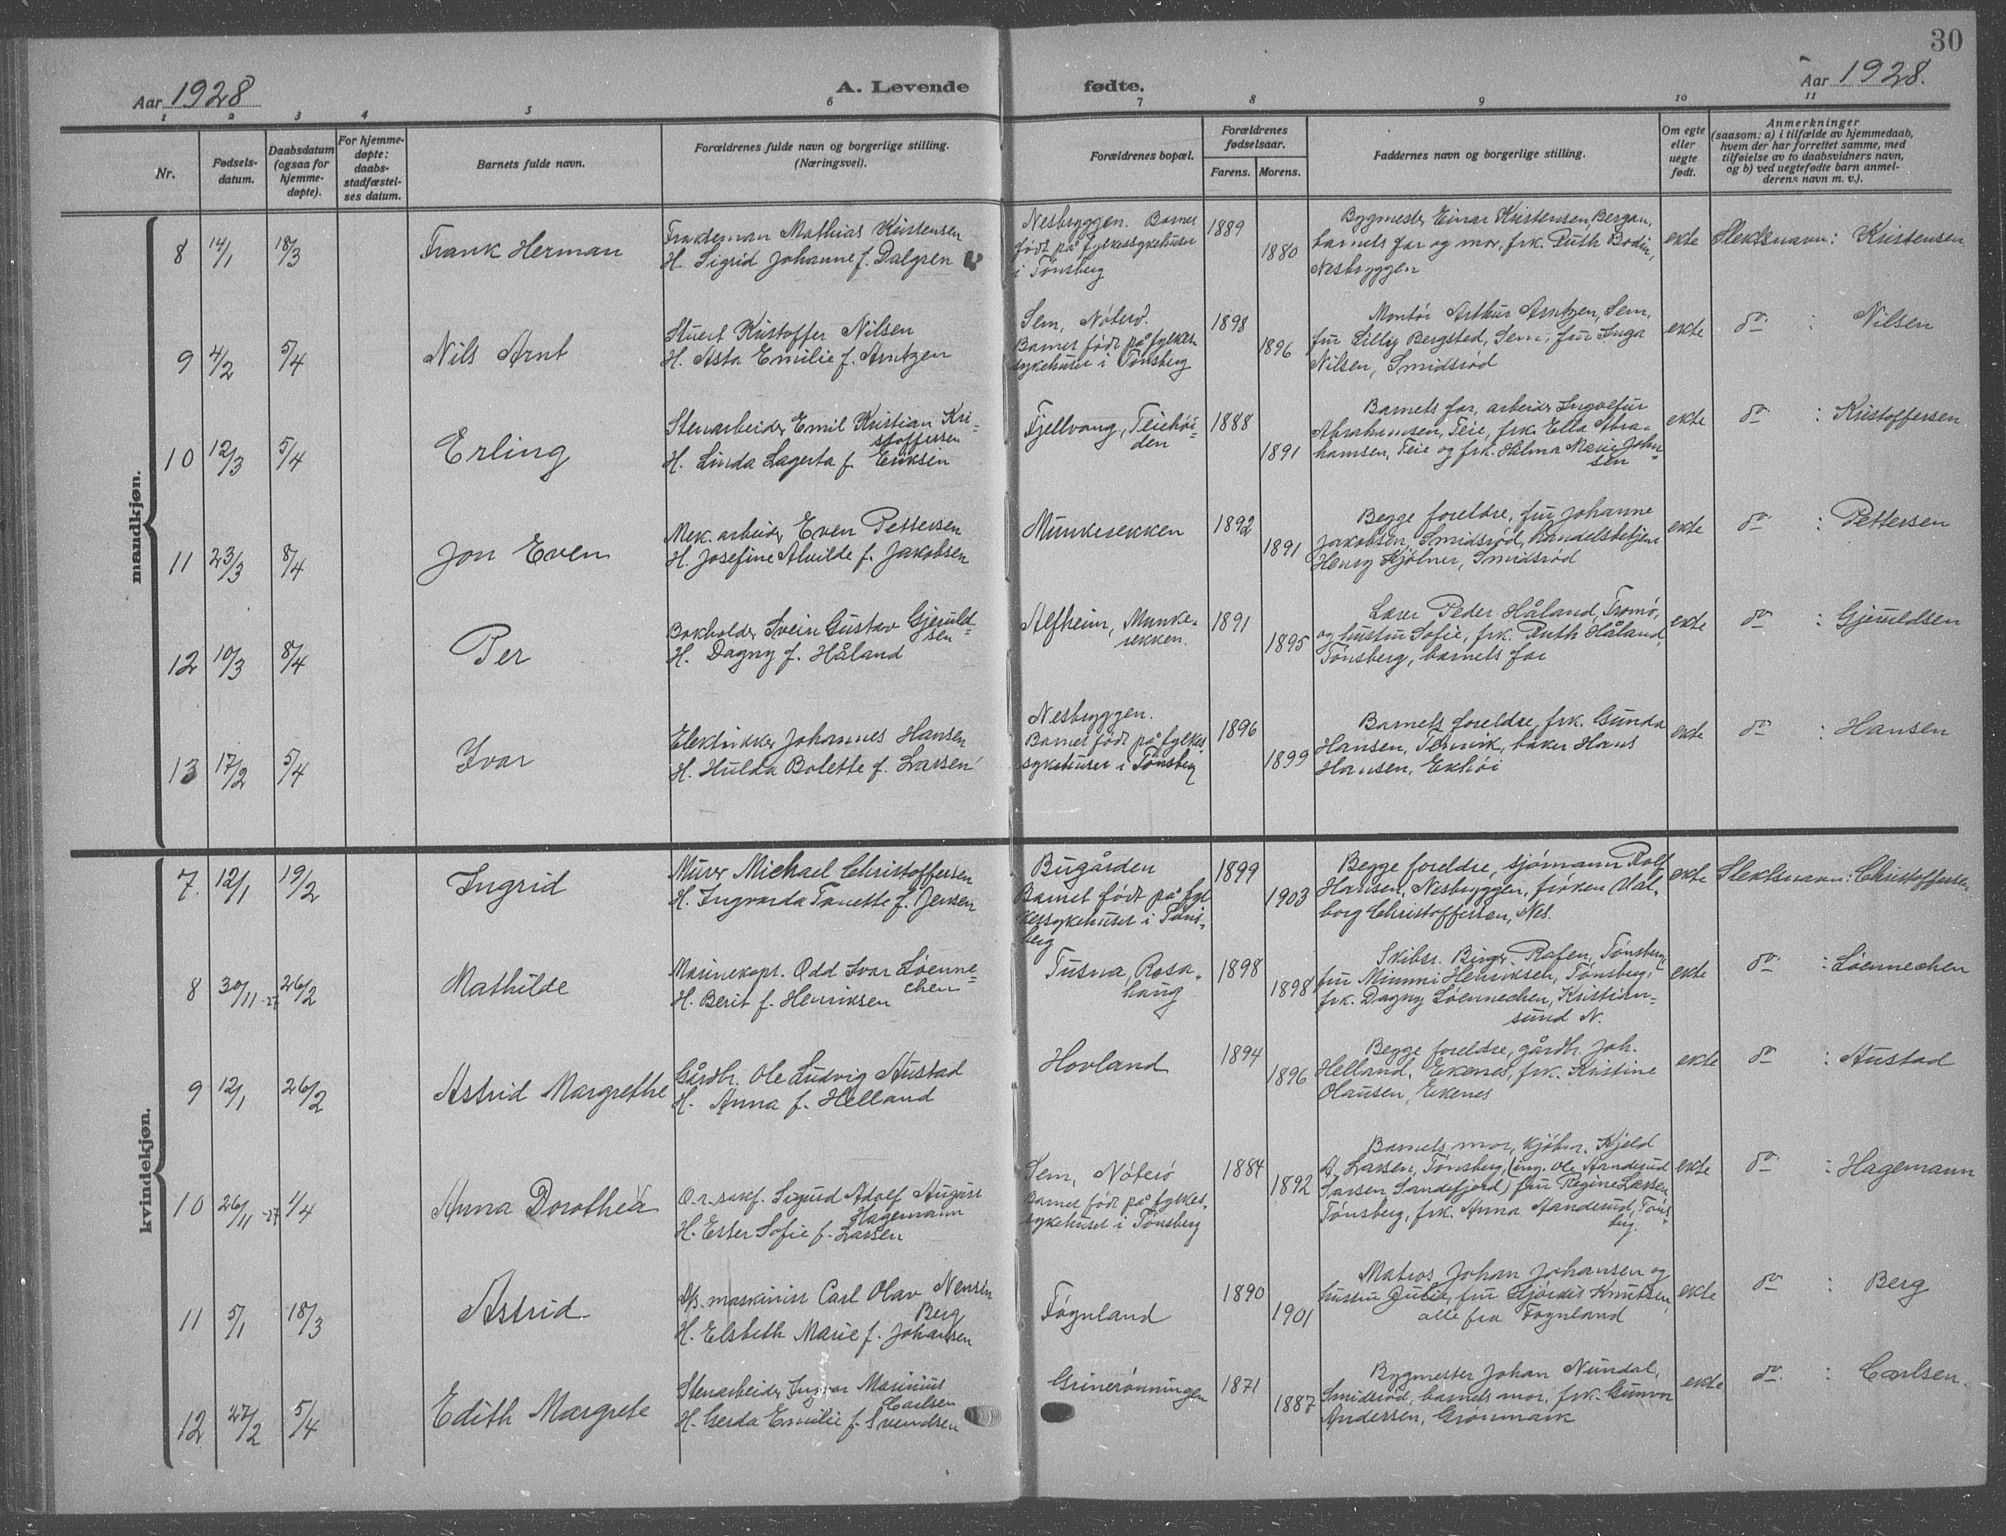 30
Aar 1928
A. Levende fødte.
Aar 1928.
1 2 3 4 5 6 7 8 9 10 11
Nr.
Fødsels-
datum.
Daabsdatum
(ogsaa for
hjemme-
døpte).
For hjemme-
døpte:
daabs-
stadfæstel-
ses datum.
Barnets fulde navn.
Forældrenes fulde navn og borgerlige stilling.
(Næringsvei).
Forældrenes bopæl.
Forældrenes
fødselsaar.
Farens. Morens.
Faddernes navn og borgerlige stilling.
Om egte
eller
uegte
født.
Anmerkninger
(saasom: a) i tilfælde av hjemmedaab,
hvem der har forrettet samme, med
tilføielse av to daabsvidners navn,
og b) ved uegtefødte barn anmel-
derens navn m. v.).
mandkjøn.
8 14/1 18/3
Frank Herman
Frakteman Mathias Kristensen
H. Sigrid Johanne f. Dalgren
Nesbryggen. Barnet
født på fylkessykehuset
i Tønsberg
1889
1880
Bygmester Einar Kristensen, Bergan,
barnets far og mor, frk. Ruth Bodin,
Nesbryggen
ekte
Slektsnavn: Kristensen
9 4/2 5/4
Nils Arnt
Stuert Kristoffer Nilsen
H. Asta Emilie f. Arntzen
Sem, Nøterø.
Barnet født på fylkes-
sykehuset i Tønsberg
1898
1896
Montør Arthur Arntzen, Sem,
fru Lilly Bergsted, Sem, fru Inga
Nilsen, Smidsrød
ekte
do : Nilsen
10 12/3 5/4
Erling
Stenarbeider Emil Kristian Kri-
stoffersen
H. Linda Lagerta f. Eriksen
Fjellvang, Teiehøi-
den
1888
1891
Barnets far, arbeider Ingvefur
Abrahamsen, Teie, frk. Ella Abra-
hamsen, Teie og frk. Halma Marie Johan-
sen
ekte
do : Kristoffersen
11 23/3 8/4
Jon Even
Mek. arbeider Even Pettersen
H. Josefine Alvilde f. Jakobsen
Munkerekken
1892
1891
Begge foreldre, fru Johanne
Jakobsen, Smidsrød, handelsbetjent
Henry Kjølner, Smidsrød
ekte
do : Pettersen
12 10/3 8/4
Per
Bokholder Svein Gustav Gjeruld-
sen
H. Dagny f. Håland
Alfheim, Munke-
rekken.
1891
1895
Lærer Peder Håland, Tromø,
og hustru Sofie, frk. Ruth Håland,
Tønsberg, barnets far
ekte
do : Gjeruldsen
13 17/2 5/4
Ivar
Elektrikker Johannes Hansen
H. Hulda Bolette f. Larsen
Nesbryggen.
Barnet født på fylkes-
sykehuset i Tønsberg
1896
1899
Barnets foreldre, frk. Gunda
Hansen, Tenvik, baker Hans
Hansen, Ekhøi
ekte
do : Hansen
kvindekjøn.
7. 12/1 19/2
Ingrid
Murer Michael Christoffersen
H. Ingvarda Tanette f. Jensen
Bugården
Barnet født på fyl-
kessykehuset i Tøns-
berg
1899
1903
Begge foreldre, sjømann Rolf
Hansen, Nesbryggen, frøken Val-
borg Christoffersen, Nes.
ekte
Slektsnavn: Christoffersen
8 30/11-27 26/2
Mathilde
Marinekapt. Odd Ivar Løenne-
chen
H. Berit f. Henriksen
Tusna, Rosa-
haug
1898
1898
Skibsr. Birger Rafen, Tønsberg,
fru Mimmi Henriksen, Tønsberg,
frk. Dagny Løennechen, Kristian-
sund N.
ekte
do : Løennechen
9 12/1 26/2
Astrid Margrethe
Gårdbr. Ole Ludvig Austad
H. Anna f. Helland
Hovland
1894
1896
Begge foreldre, gårdbr. Joh.
Helland, Ekenes, frk. Kristine
Olausen, Ekenes
ekte
do : Austad
10 26/11-27 1/4
Anna Dorothea
O.r.sakf. Sigurd Adolf August
Hagemann
H. Ester Sofie f. Larsen
Sem, Nøterø
Barnet født på fylkes-
sykehuset i Tønsberg
1884
1892
Barnets mor, kjøbm. Kjeld
A. Larsen, Tønsberg, (ing. Ole Aanderud
Larsen Sandefjord) fru Regine Larsen
Tønsberg, frk. Anna Aanderud, Tøns-
berg.
ekte
do : Hagemann
11 5/1 18/3
Astrid
D/S. maskinist Carl Olav Nensén
Berg
H. Elsbeth Marie f. Johansen
Føgnland
1890
1901
Matros Johan Johansen og
hustru Julie, fru Hjørdis Knutsen,
alle fra Føgnland
ekte
do : Berg
12 27/2 5/4
Edith Margrete
Stenarbeider Ingvar Marinius
Carlsen
H. Gerda Emilie f. Svendsen
Grinerønningen
1871
1887
Bygmester Johan Nundal,
Smidsrød, barnets mor, frk. Gunvor
Andersen, Grønmark
ekte
do. : Carlsen.